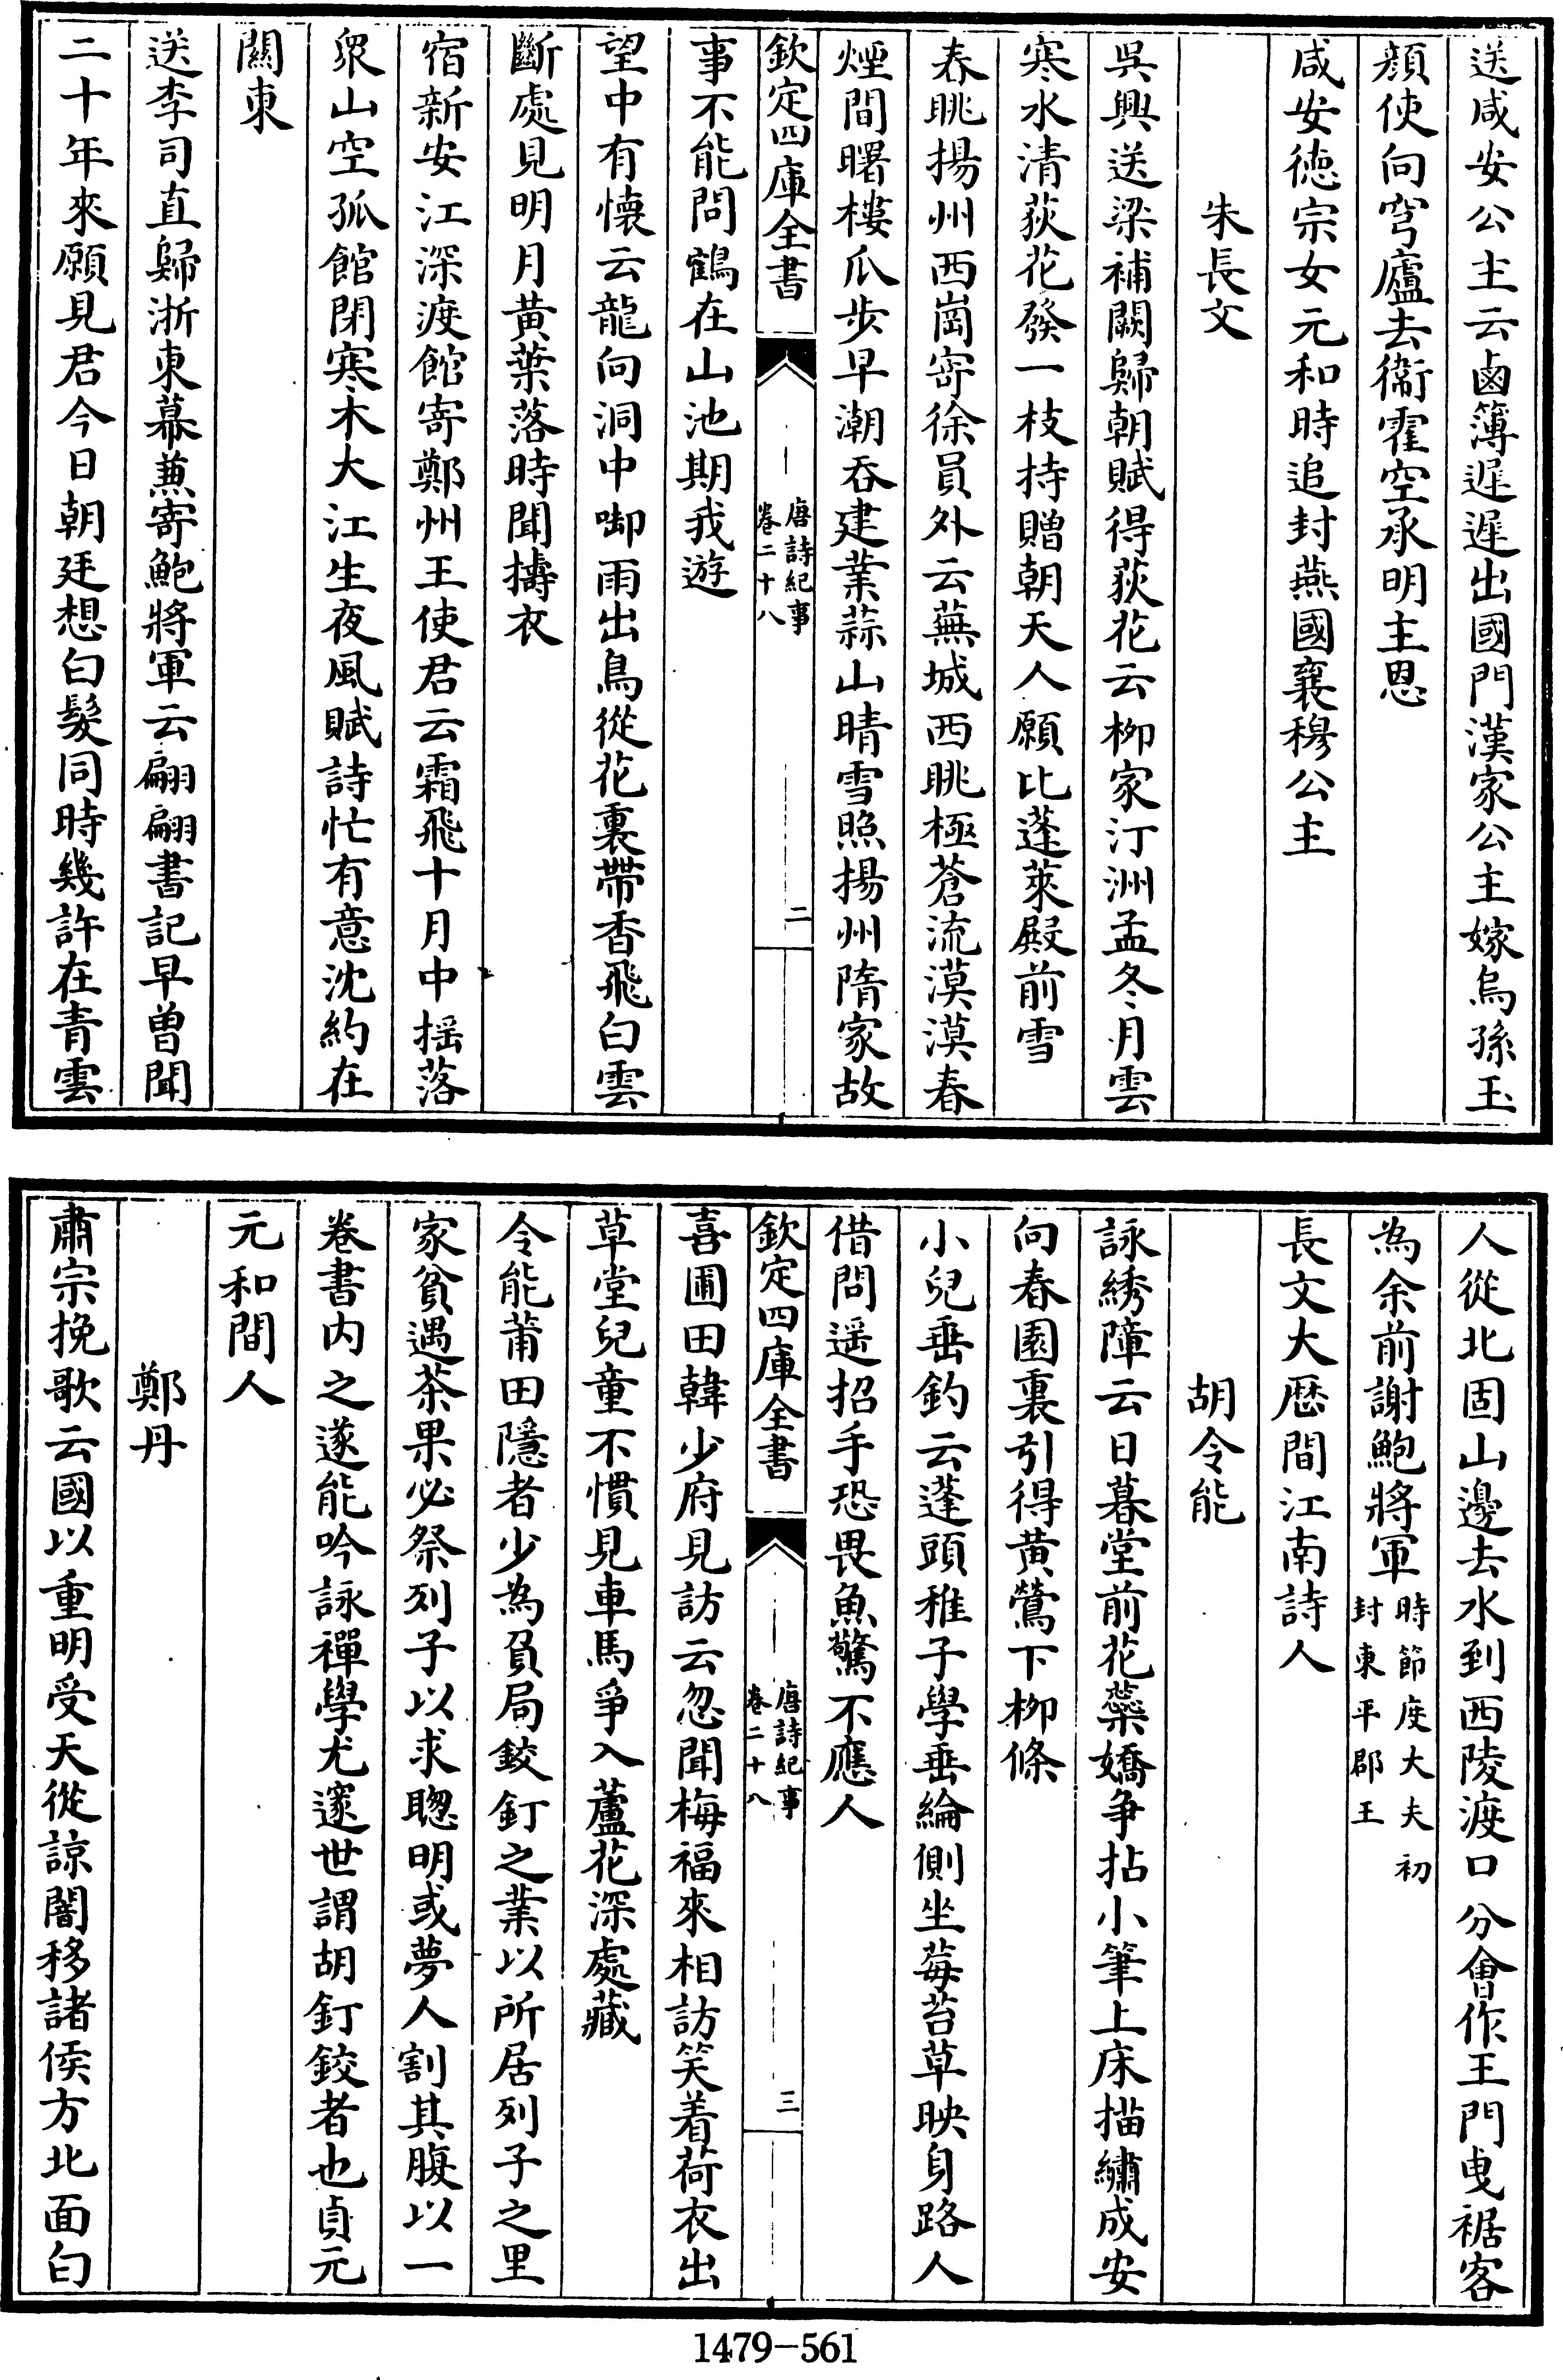 送咸安公主云鹵簿遲遲出國門漢家公主嫁烏孫玉
顏使向穹廬去衞霍空承明主恩
咸安徳宗女元和時追封燕國襄穆公主
朱長文
吳興送梁補闕歸朝賦得荻花云柳家汀洲孟冬月雲
寒水清荻花發一枝持贈朝天人願比蓬萊殿前雪
春眺揚州西崗寄徐員外云蕪城西眺極蒼流漠漠春
煙間曙樓瓜步早潮吞建業蒜山晴雪照揚州隋家故
欽定四庫全書
唐詩紀事
卷二十八
二
事不能問鶴在山池期我遊
望中有懷云龍向洞中啣雨出鳥從花裏帶香飛白雲
斷處見明月黄葉落時聞擣衣
宿新安江深渡館寄鄭州王使君云霜飛十月中揺落
衆山空孤館閉寒木大江生夜風賦詩忙有意沈約在
關東
送李司直歸浙東幕兼寄鮑將軍云翩翩書記早曽聞
二十年來願見君今日朝廷想白髮同時幾許在青雲
人從北固山邊去水到西陵渡口分會作王門曵裾客
為余前謝鮑將軍時節度大夫初
封東平郡王
長文大厯間江南詩人
胡令能
詠綉障云日暮堂前花蘂嬌争拈小筆上床描繡成安
向春園裏引得黄鶯下柳條
小兒垂釣云蓬頭稚子學垂綸側坐莓苔草映身路人
借問遥招手恐畏魚驚不應人
欽定四庫全書
唐詩紀事
卷二十八
三
喜圃田韓少府見訪云忽聞梅福來相訪笑着荷衣出
草堂兒童不慣見車馬爭入蘆花深處藏
令能莆田隱者少為負局鉸釘之業以所居列子之里
家貧遇茶果必祭列子以求聰明或夢人割其腹以一
卷書内之遂能吟詠禪學尤邃世謂胡釘鉸者也貞元
元和間人
鄭丹
肅宗挽歌云國以重明受天從諒闇移諸侯方北面白
1479-561